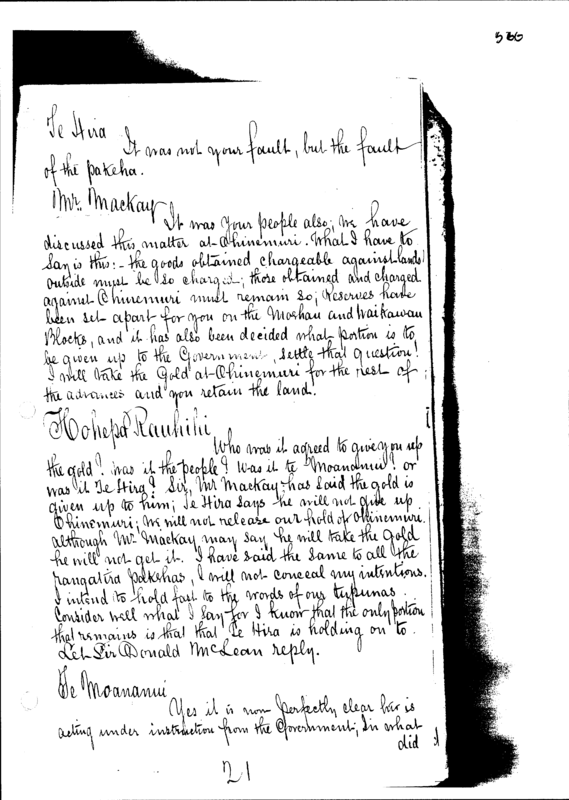 366
Te Hira
It was not your fault, but the fault
of the pakeha.
Mr. Mackay
It was your people also; we have
discussed this matter at Ohinemuri. What I have to
say is this:- the goods obtained chargeable against lands
outside must be so charged; those obtained and charged
against Ohinemuri must remain so; Reserves have
been set apart for you on the Moehau and Waikawau
Blocks, and it has also been decided what portion is to
be given up to the Government, settle that question!
I will take the Gold at Ohinemuri for the rest of
the advances and you retain the land.
Hohepa Rauhihi
Who was it agreed to give you up
the gold? was it the people? Was it te Moananui? or
was it Te Hira? Sir, Mr Mackay has said the gold is
given up to him; Te Hira says he will not give up
Ohinemuri; we will not release our hold of Ohinemuri.
although Mr Mackay may say he will take the gold
he will not get it. I have said the same to all the
rangatira pakehas, I will not conceal my intentions.
I intend to hold fast to the words of our tupunas.
Consider well what I say for I know that the only portion
that remains is that that Te Hira is holding on to.
Let Sir Donald McLean reply.
Te Moananui
Yes it is now perfectly clear he is
acting under instruction from the Government; In what
did
21